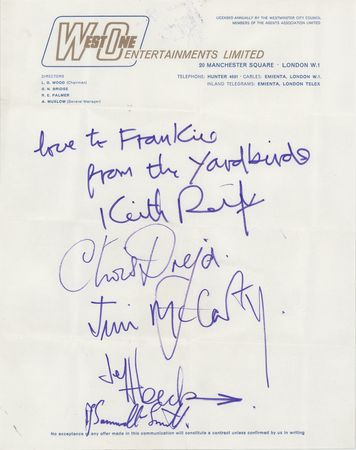 LICENSED ANNUALLY BY THE WESTMINSTER CITY COUNCIL
MEMBERS OF THE AGENTS ASSOCIATION LIMITED
WEST ONE
ENTERTAINMENTS LIMITED
20 MANCHESTER SQUARE · LONDON W.1
DIRECTORS
L. G. WOOD (Chairman)
G. N. BRIDGE
P. E. PALMER
A. MUXLOW (General Manager)
TELEPHONE: HUNTER 4691 · CABLES: EMIENTA, LONDON W.1.
INLAND TELEGRAMS: EMIENTA, LONDON TELEX
love to Frankie
from the Yardbirds
Keith Relf
Chris Dreja.
Jim McCarty
Jeff Beck
P Samwell Smith.
No acceptance of any offer made in this communication will constitute a contract unless confirmed by us in writing